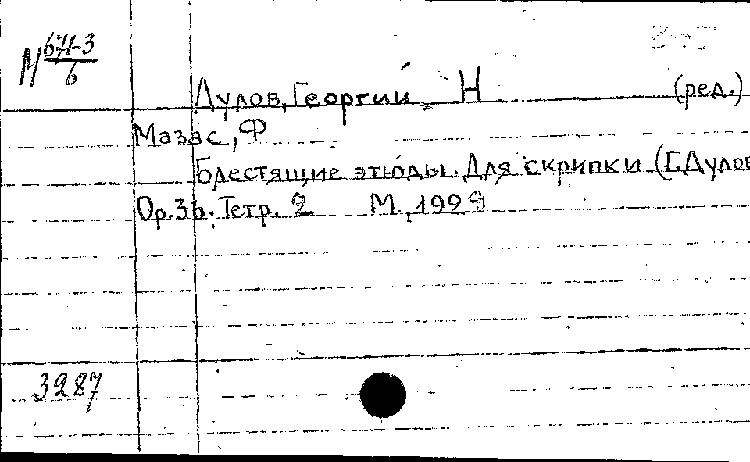 М 671-3
6
Дулов, Георгий Н (ред.)
Мазас, Ф
Блестящие этюды. Для скрипки (Г. Дулов
Op. 36. Тетр. 2 М., 1928
3287